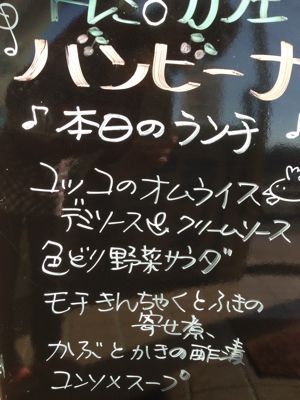 ドレミ。カフェ
バンビーナ
♪本日のランチ
ユッコのオムライス
デミソース&クリームソース
色どり野菜サラダ
モチきんちゃくとふきの
寄せ煮、
かぶとかきの酢漬
コンソメスープ